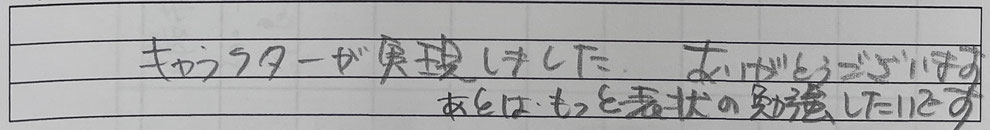 キャラクターが実現しました ありがとうございます
あとは、もっと表状の勉強したいです